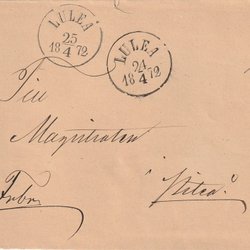 LULEÅ
25
18 4 72
LULEÅ
24
18 4 72
Till
Magistraten
Piteå.